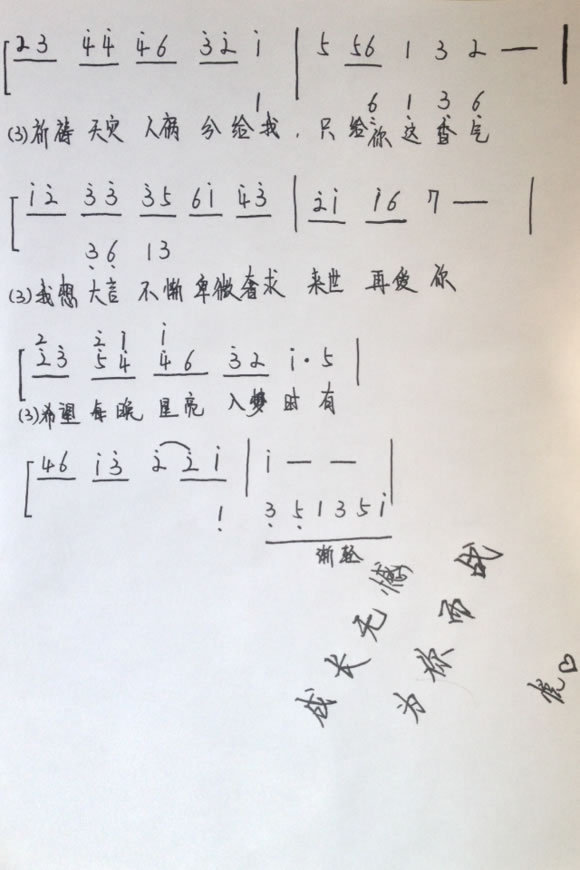 2 3 4̇ 4̇ 4̇ 6 3̇ 2̇ i | 5 56 1 3 2 — |
1 6 1 3 6
(3)祈祷 天灾 人祸 分给我，只给你这香气
i 2̇ 3̇ 3̇ 3̇5 6i 4̇3̇ | 2̇i i6 7 — |
3 6 1 3
(3)我想 大言 不惭 卑微奢求 来世 再爱 你
2 2̇ 1 i
2̇3 5 4̇ 4̇ 6 3̇2 i·5 |
(3)希望 每晚 星亮 入梦 时 有
46 i3̇ 2̇ 2̇ i | i — — |
1 3 5 1 3 5 i
渐轻
成长无憾
为你而战